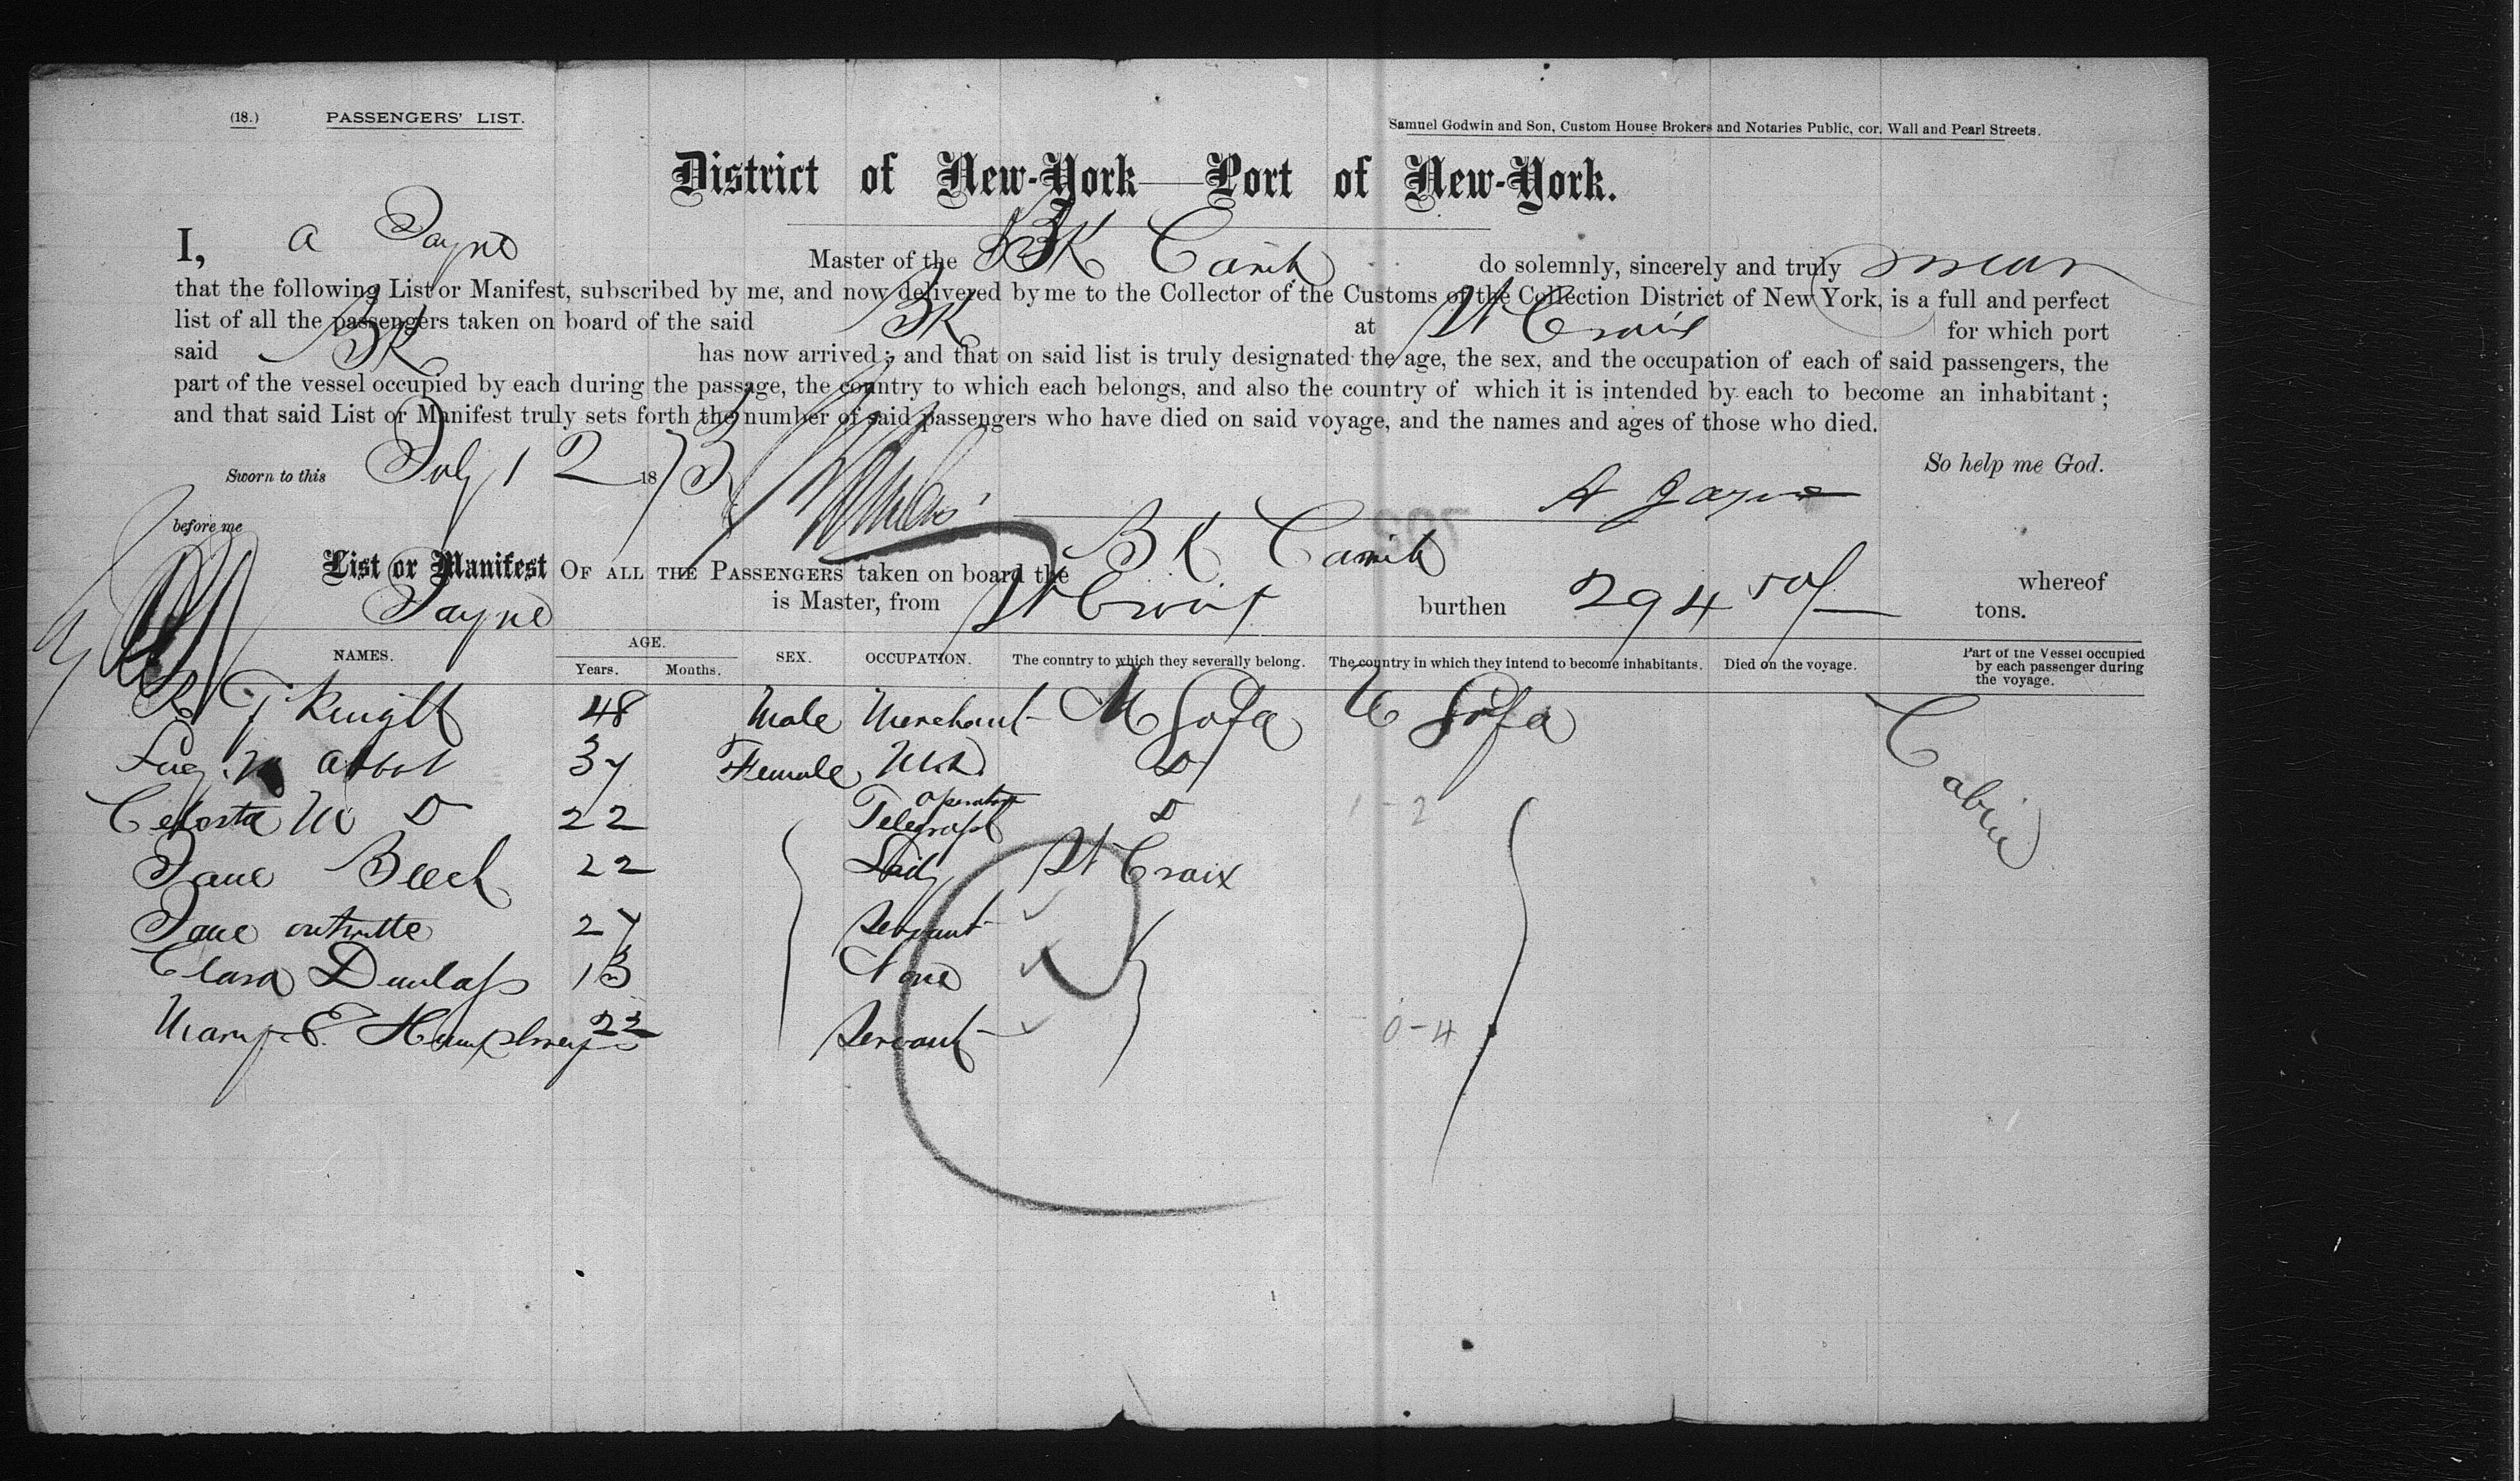 (18.) PASSENGERS' LIST.
Samuel Godwin and Son, Custom House Brokers and Notaries Public, cor. Wall and Pearl Streets.
District of New-York—Port of New-York.
I, A Jayne Master of the BK Carib do solemnly, sincerely and truly swear
that the following List or Manifest, subscribed by me, and now delivered by me to the Collector of the Customs of the Collection District of New York, is a full and perfect
list of all the passengers taken on board of the said BK at St Croix for which port
said BK has now arrived; and that on said list is truly designated the age, the sex, and the occupation of each of said passengers, the
part of the vessel occupied by each during the passage, the country to which each belongs, and also the country of which it is intended by each to become an inhabitant;
and that said List or Manifest truly sets forth the number of said passengers who have died on said voyage, and the names and ages of those who died.
Sworn to this July 12 1873 So help me God.
before me A Jayne
List or Manifest OF ALL THE PASSENGERS taken on board the BK Carib whereof
Jayne is Master, from St Croix burthen 294 tons.
NAMES. AGE. Years. Months. SEX. OCCUPATION. The country to which they severally belong. The country in which they intend to become inhabitants. Died on the voyage. Part of the Vessel occupied by each passenger during the voyage.
Knight 48 Male Merchant U S of a U S of a Cabin
Abbot 37 Female D
M D 22 Telegraph operator D 1-2
Jane Beech 22 Lady St Croix
Jane 27 Servant
Clara Dunlap 13 None
Mary E. Humphreys 22 Servant 0-4